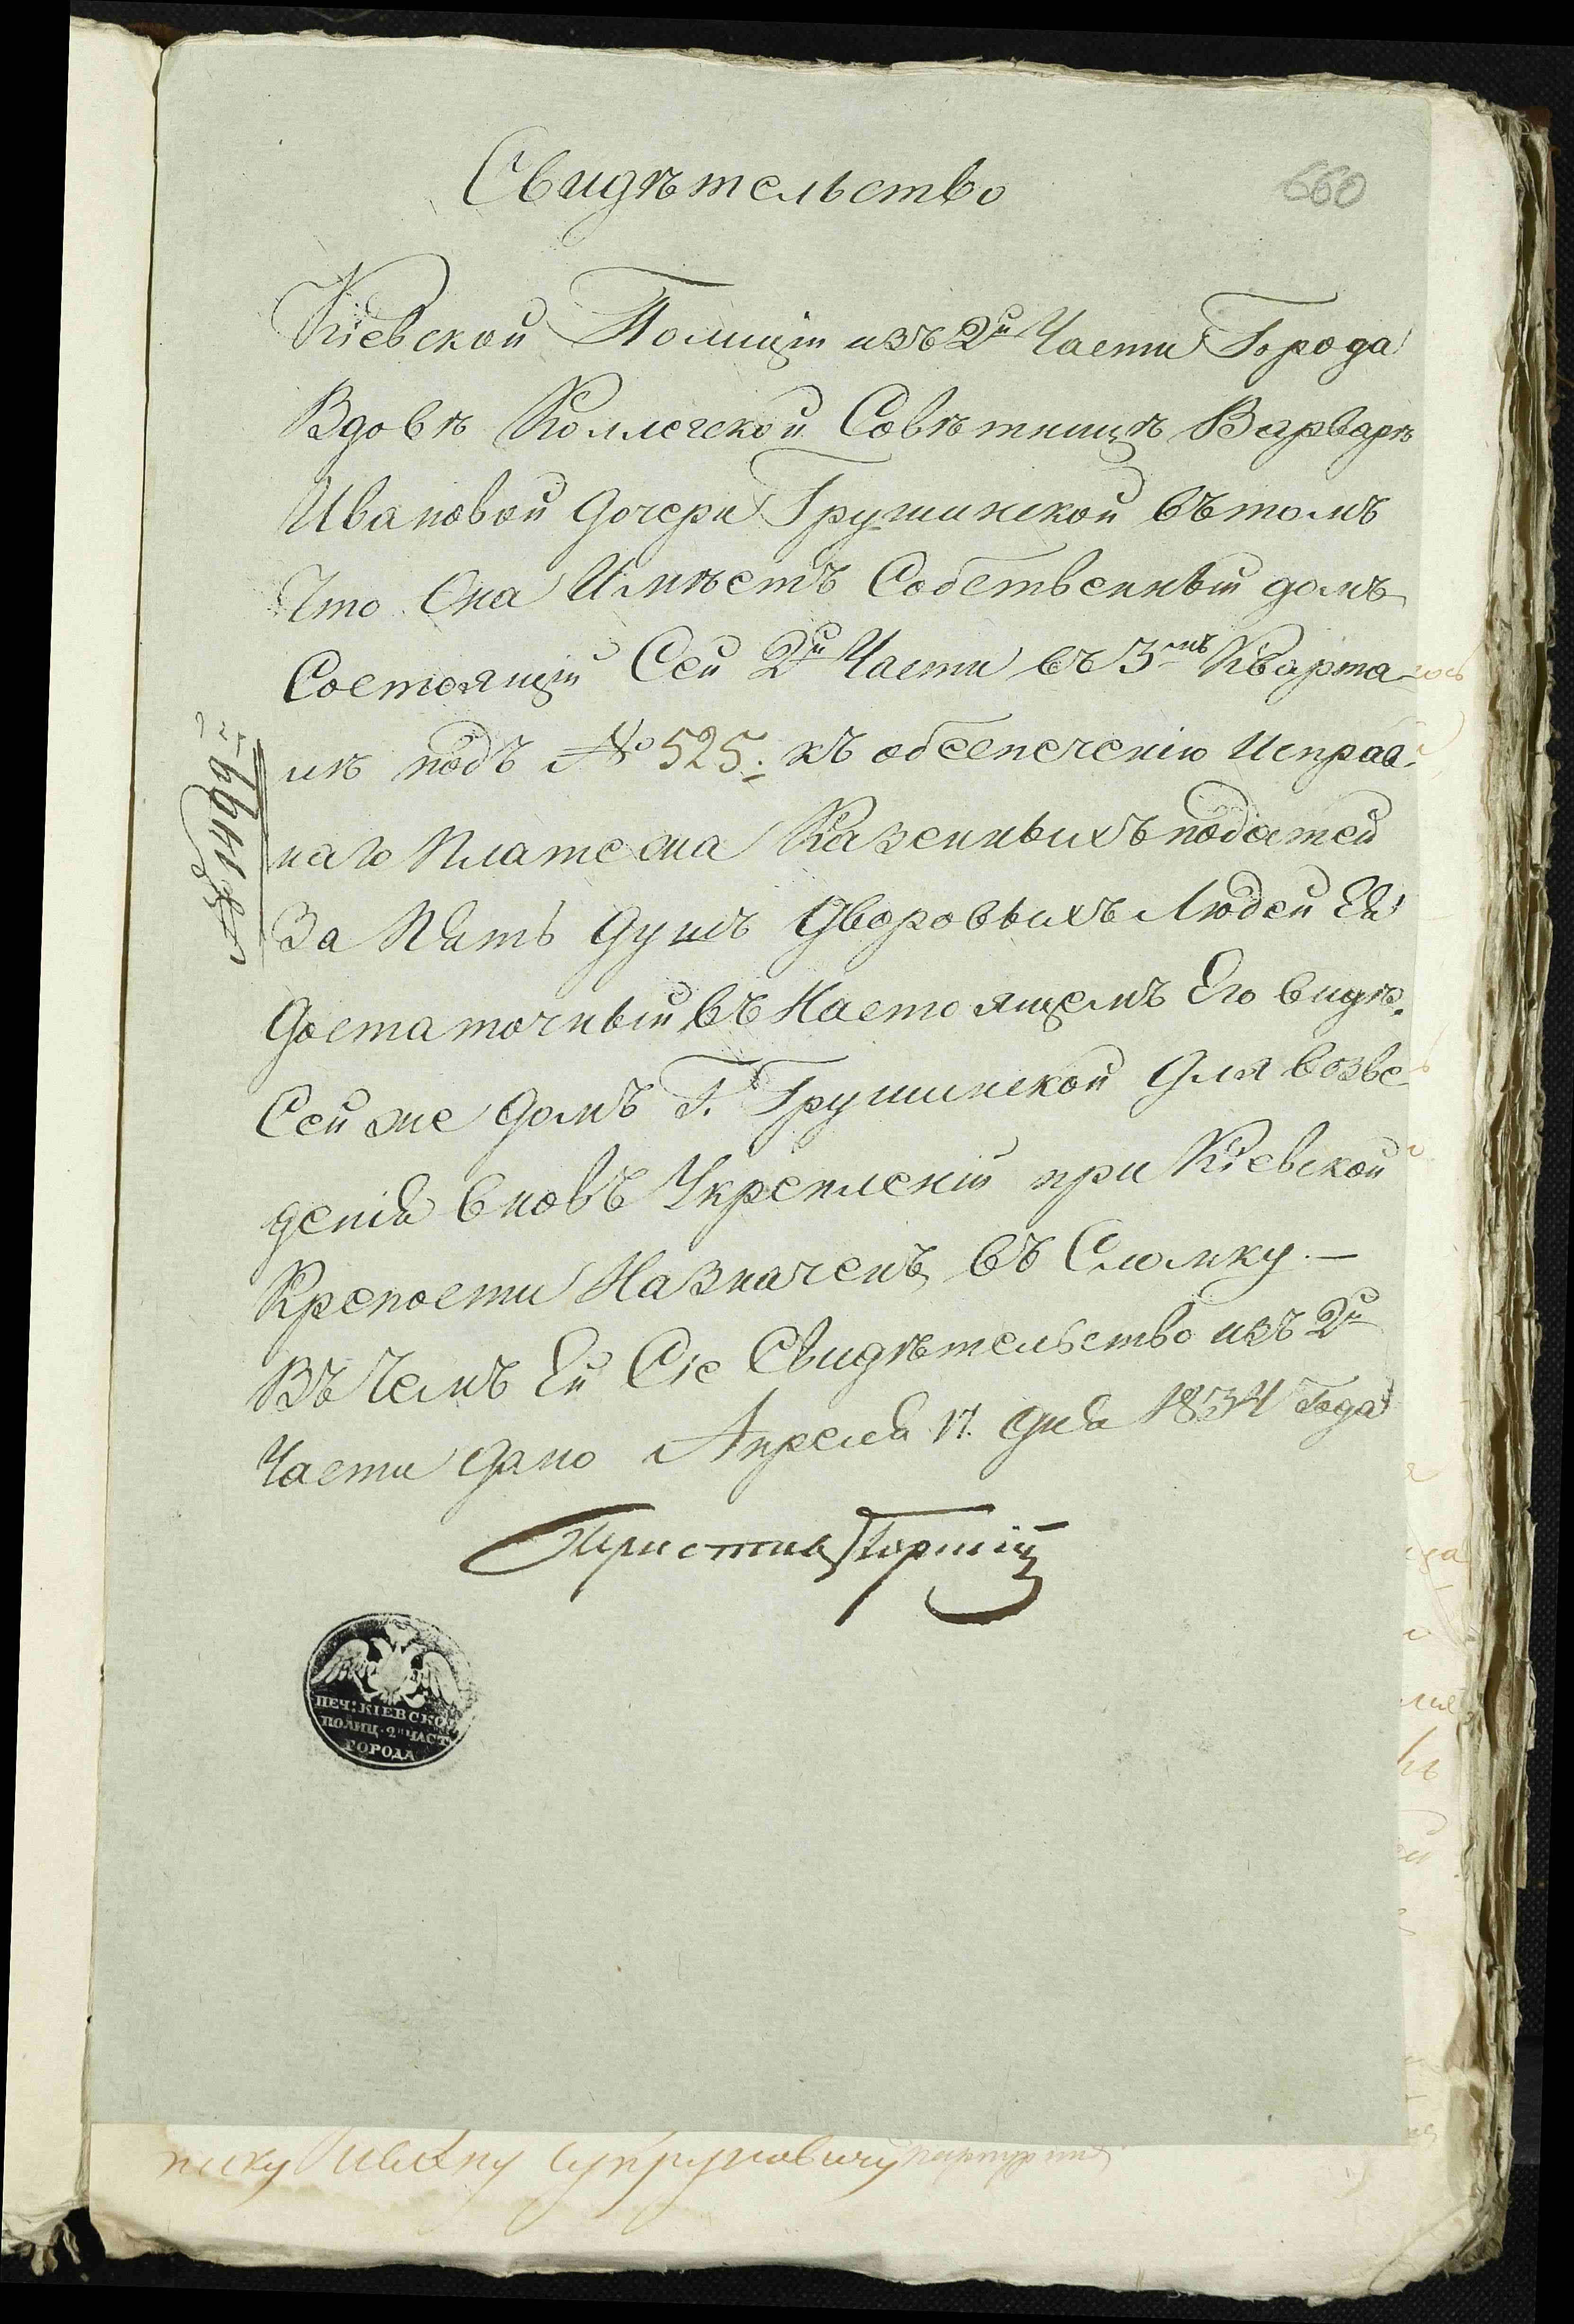 Свидѣтельство
660
Кіевской Полиціи изъ 2й Части Города
Вдовѣ Коллегской Совѣтницѣ Варварѣ
Ивановой дочери Грушинской въ томъ
Что Она Имѣетъ Собственный домъ
Состоящій Сей 2й Части въ 3мъ Кварта-
лѣ подъ № 525. къ обсепеченію Исправ-
наго Платежа Казенныхъ податей
За Пять душъ Дворовыхъ Людей Ея
Достаточный въ Настоящемъ Его видѣ.
Сей же домъ Г. Грушинской Для возве-
денія вновъ Укрепленій при Кіевской
Крепости Назначенъ въ Сломку.—
Въ Чемъ Ей Сіе Свидѣтельство изъ 2й
Части дано Апреля 17. дня 1834 Года
Приставъ
№ 1496
ПЕЧ: КІЕВСКОЙ
ПОЛИЦ. 2й ЧАСТ
ГОРОДА